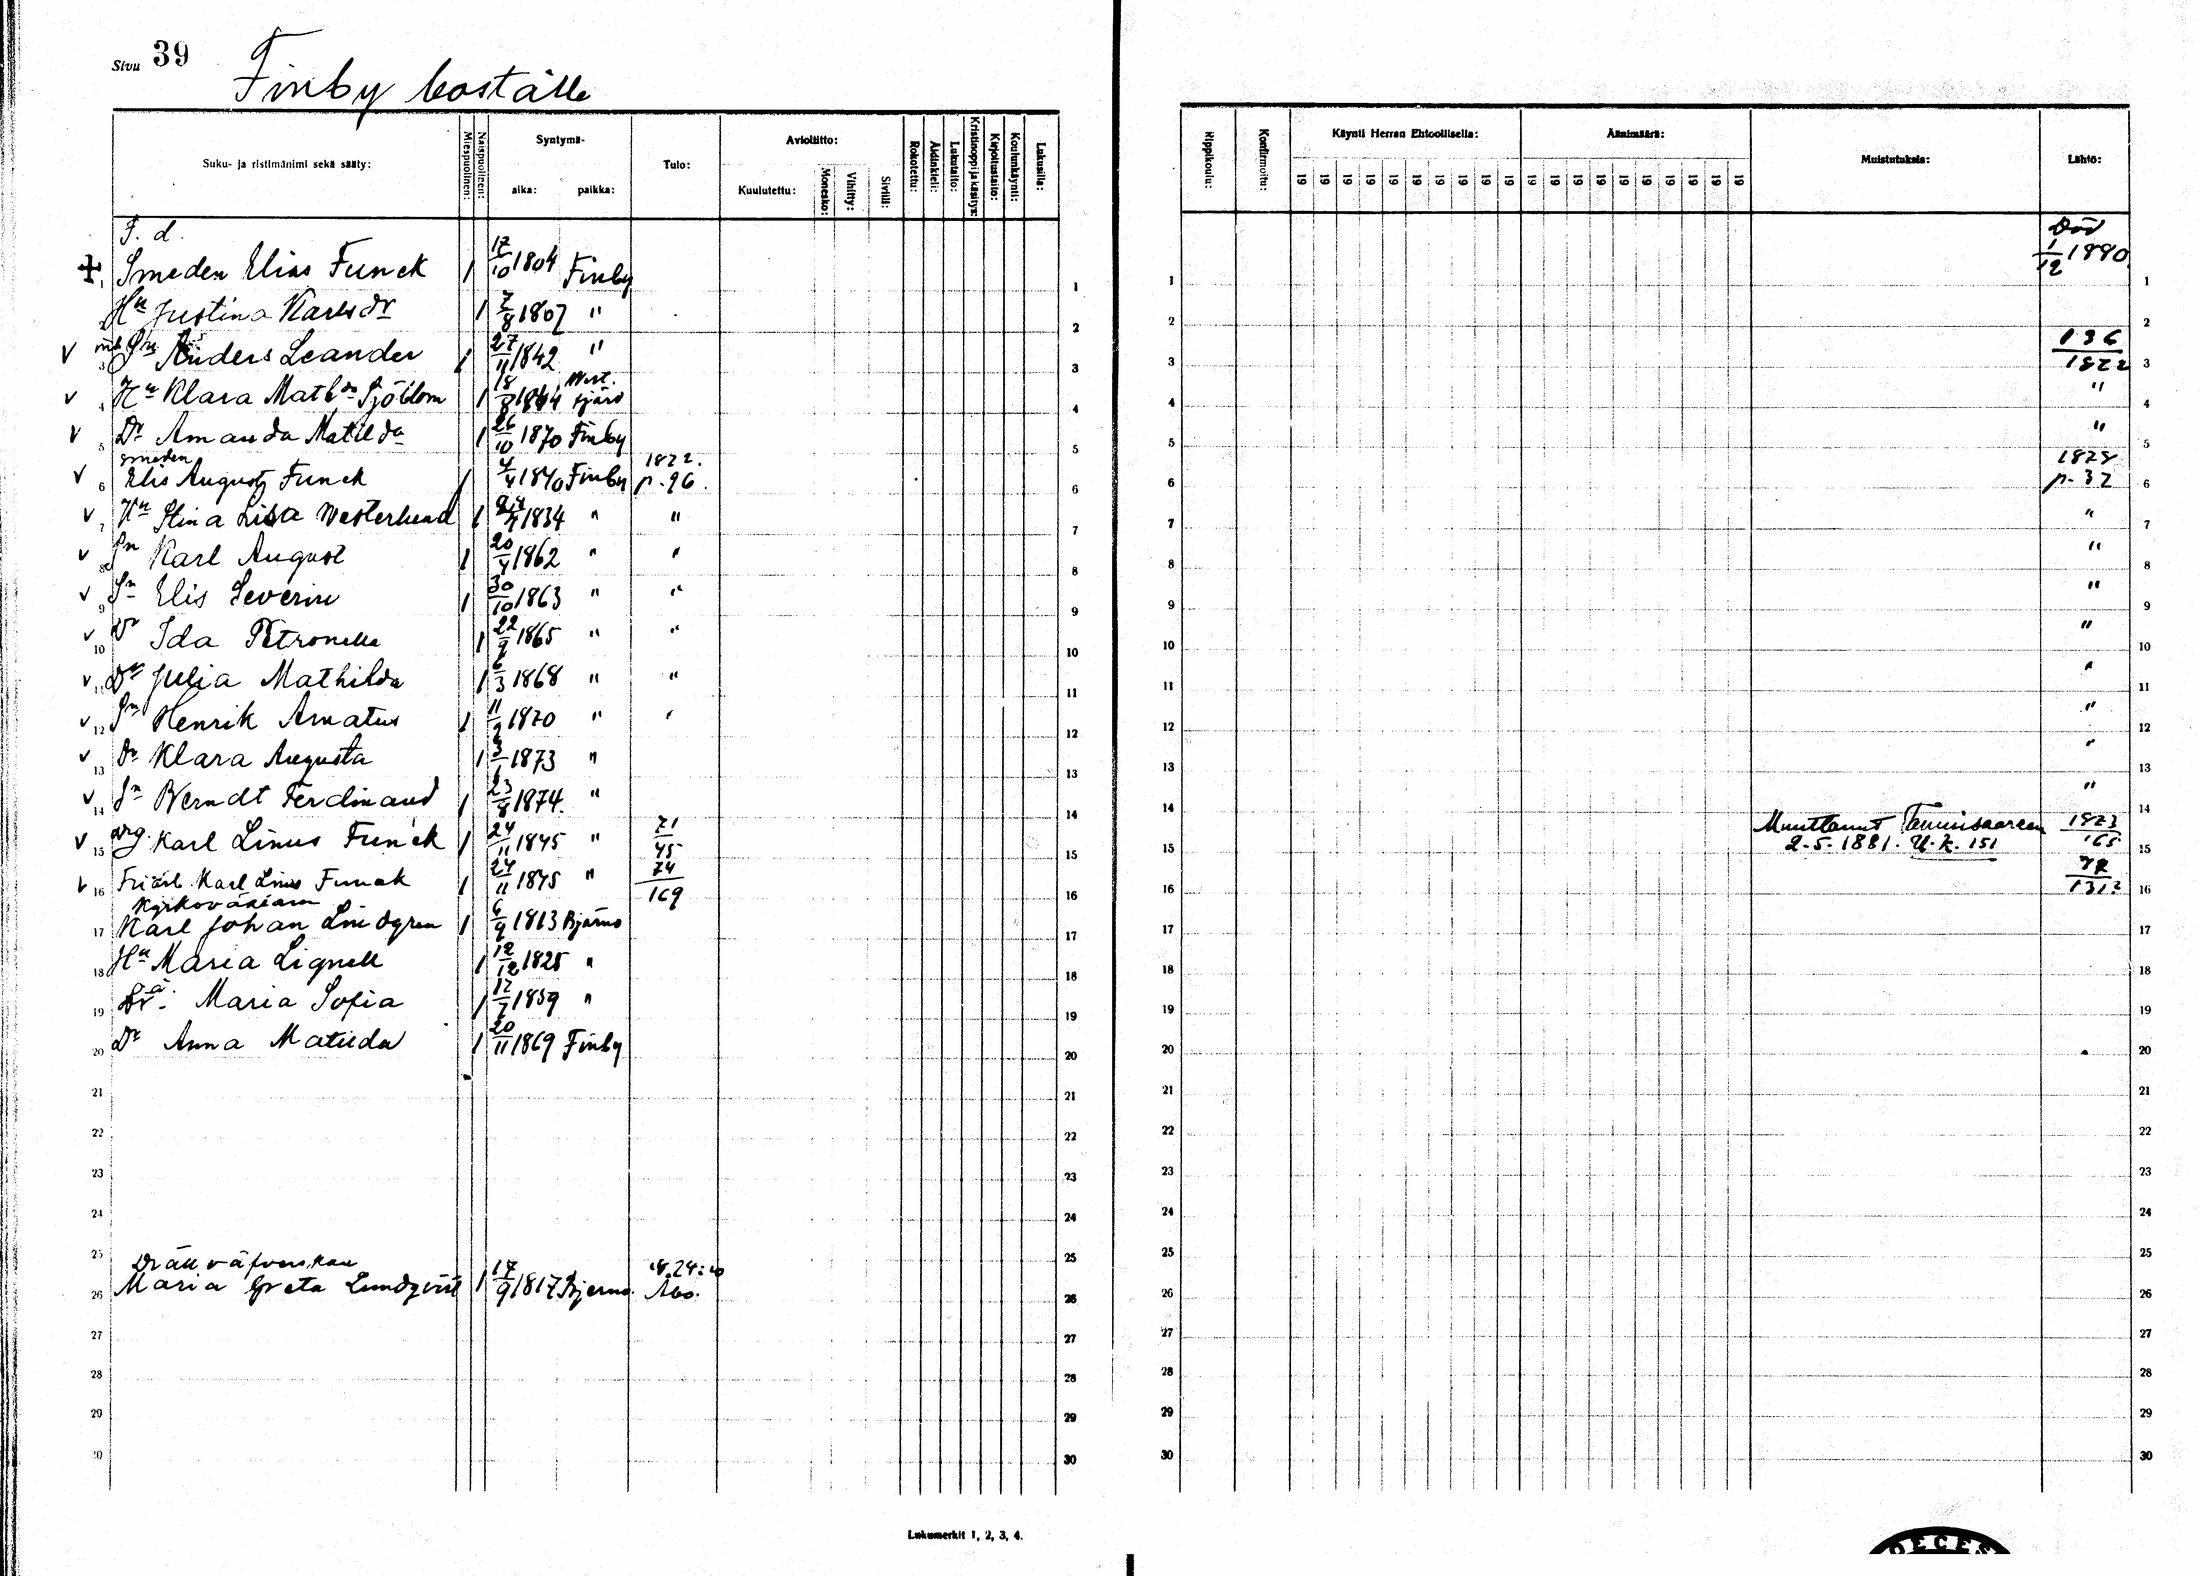 Sivu 39
Finby boställe
Suku- ja ristimänimi sekä sääty: Miespuolinen: Naispuolinen: Syntymä- aika: paikka: Tulo: Avioliitto: Kuulutettu: Monesko: Vihitty: Siviili: Rokotettu: Äidinkieli: Lukutaito: Kristinoppi ja käsitys: Kirjoitustaito: Koulunkäynti: Lukusilla:
Rippikoulu: Konfirmoitu: Käynti Herran Ehtoollisella: Äänimäärä: Muistutuksia: Lähtö:
19 19 19 19 19 19 19 19 19 19 19 19 19 19 19 19 19 19 19 19
F. d.
1 Smeden Elias Funck 1 17/10 1804 Finby 1 1 Död 1/12 1880 1
2 Hu Justina Karlsdr 1 7/8 1807 " 2 2 2
V 3 Sn Anders Leander 1 27/11 1842 " 3 3 136/1822 3
V 4 Hu Klara Matsdr Sjöblom 1 18/8 1844 4 4 " 4
V 5 Dr Amanda Matilda 1 26/10 1870 Finby 5 5 " 5
smeden
V 6 Elis August Funck 1 4/4 1840 Finby 1822. p. 96. 6 6 1828 p. 32 6
V 7 Hu Stina Lisa Westerlund 1 1834 " " 7 7 " 7
V 8 Sn Karl August 1 20/4 1862 " " 8 8 " 8
V 9 Sn Elis Severin 1 30/10 1863 " " 9 9 " 9
V 10 Dr Ida Petronella 1 22/9 1865 " " 10 10 " 10
V 11 Dr Julia Mathilda 1 6/3 1868 " " 11 11 " 11
V 12 Sn Henrik Amatus 1 11/2 1870 " " 12 12 " 12
V 13 Dr Klara Augusta 1 3/1 1873 " 13 13 " 13
V 14 Sn Berndt Ferdinand 1 23/8 1874. " 14 14 " 14
V 15 Karl Linus Funck 1 24/11 1845 " 71/45 15 15 Muuttanut Tammisaareen 2.5.1881. U.k. 151 1823/165 15
V 16 Karl Linus Funck 1 24/11 1845 " 74/169 16 16 78/131? 16
Kyrkoväktarn
17 Karl Johan Lindgren 1 6/9 1813 Bjärno 17 17 17
18 Hu Maria Lignell 1 12/12 1825 " 18 18 18
19 Maria Sofia 1 17/7 1859 " 19 19 19
20 Dr Anna Matilda 1 20/11 1869 Finby 20 20 20
21 21 21 21
22 22 22 22
23 23 23 23
24 24 24 24
25 25 25 25
26 Maria Greta Lundqvist 1 17/9 1817 Bjerno Åbo. 26 26 26
27 27 27 27
28 28 28 28
29 29 29 29
30 30 30 30
Lukumerkit 1, 2, 3, 4.